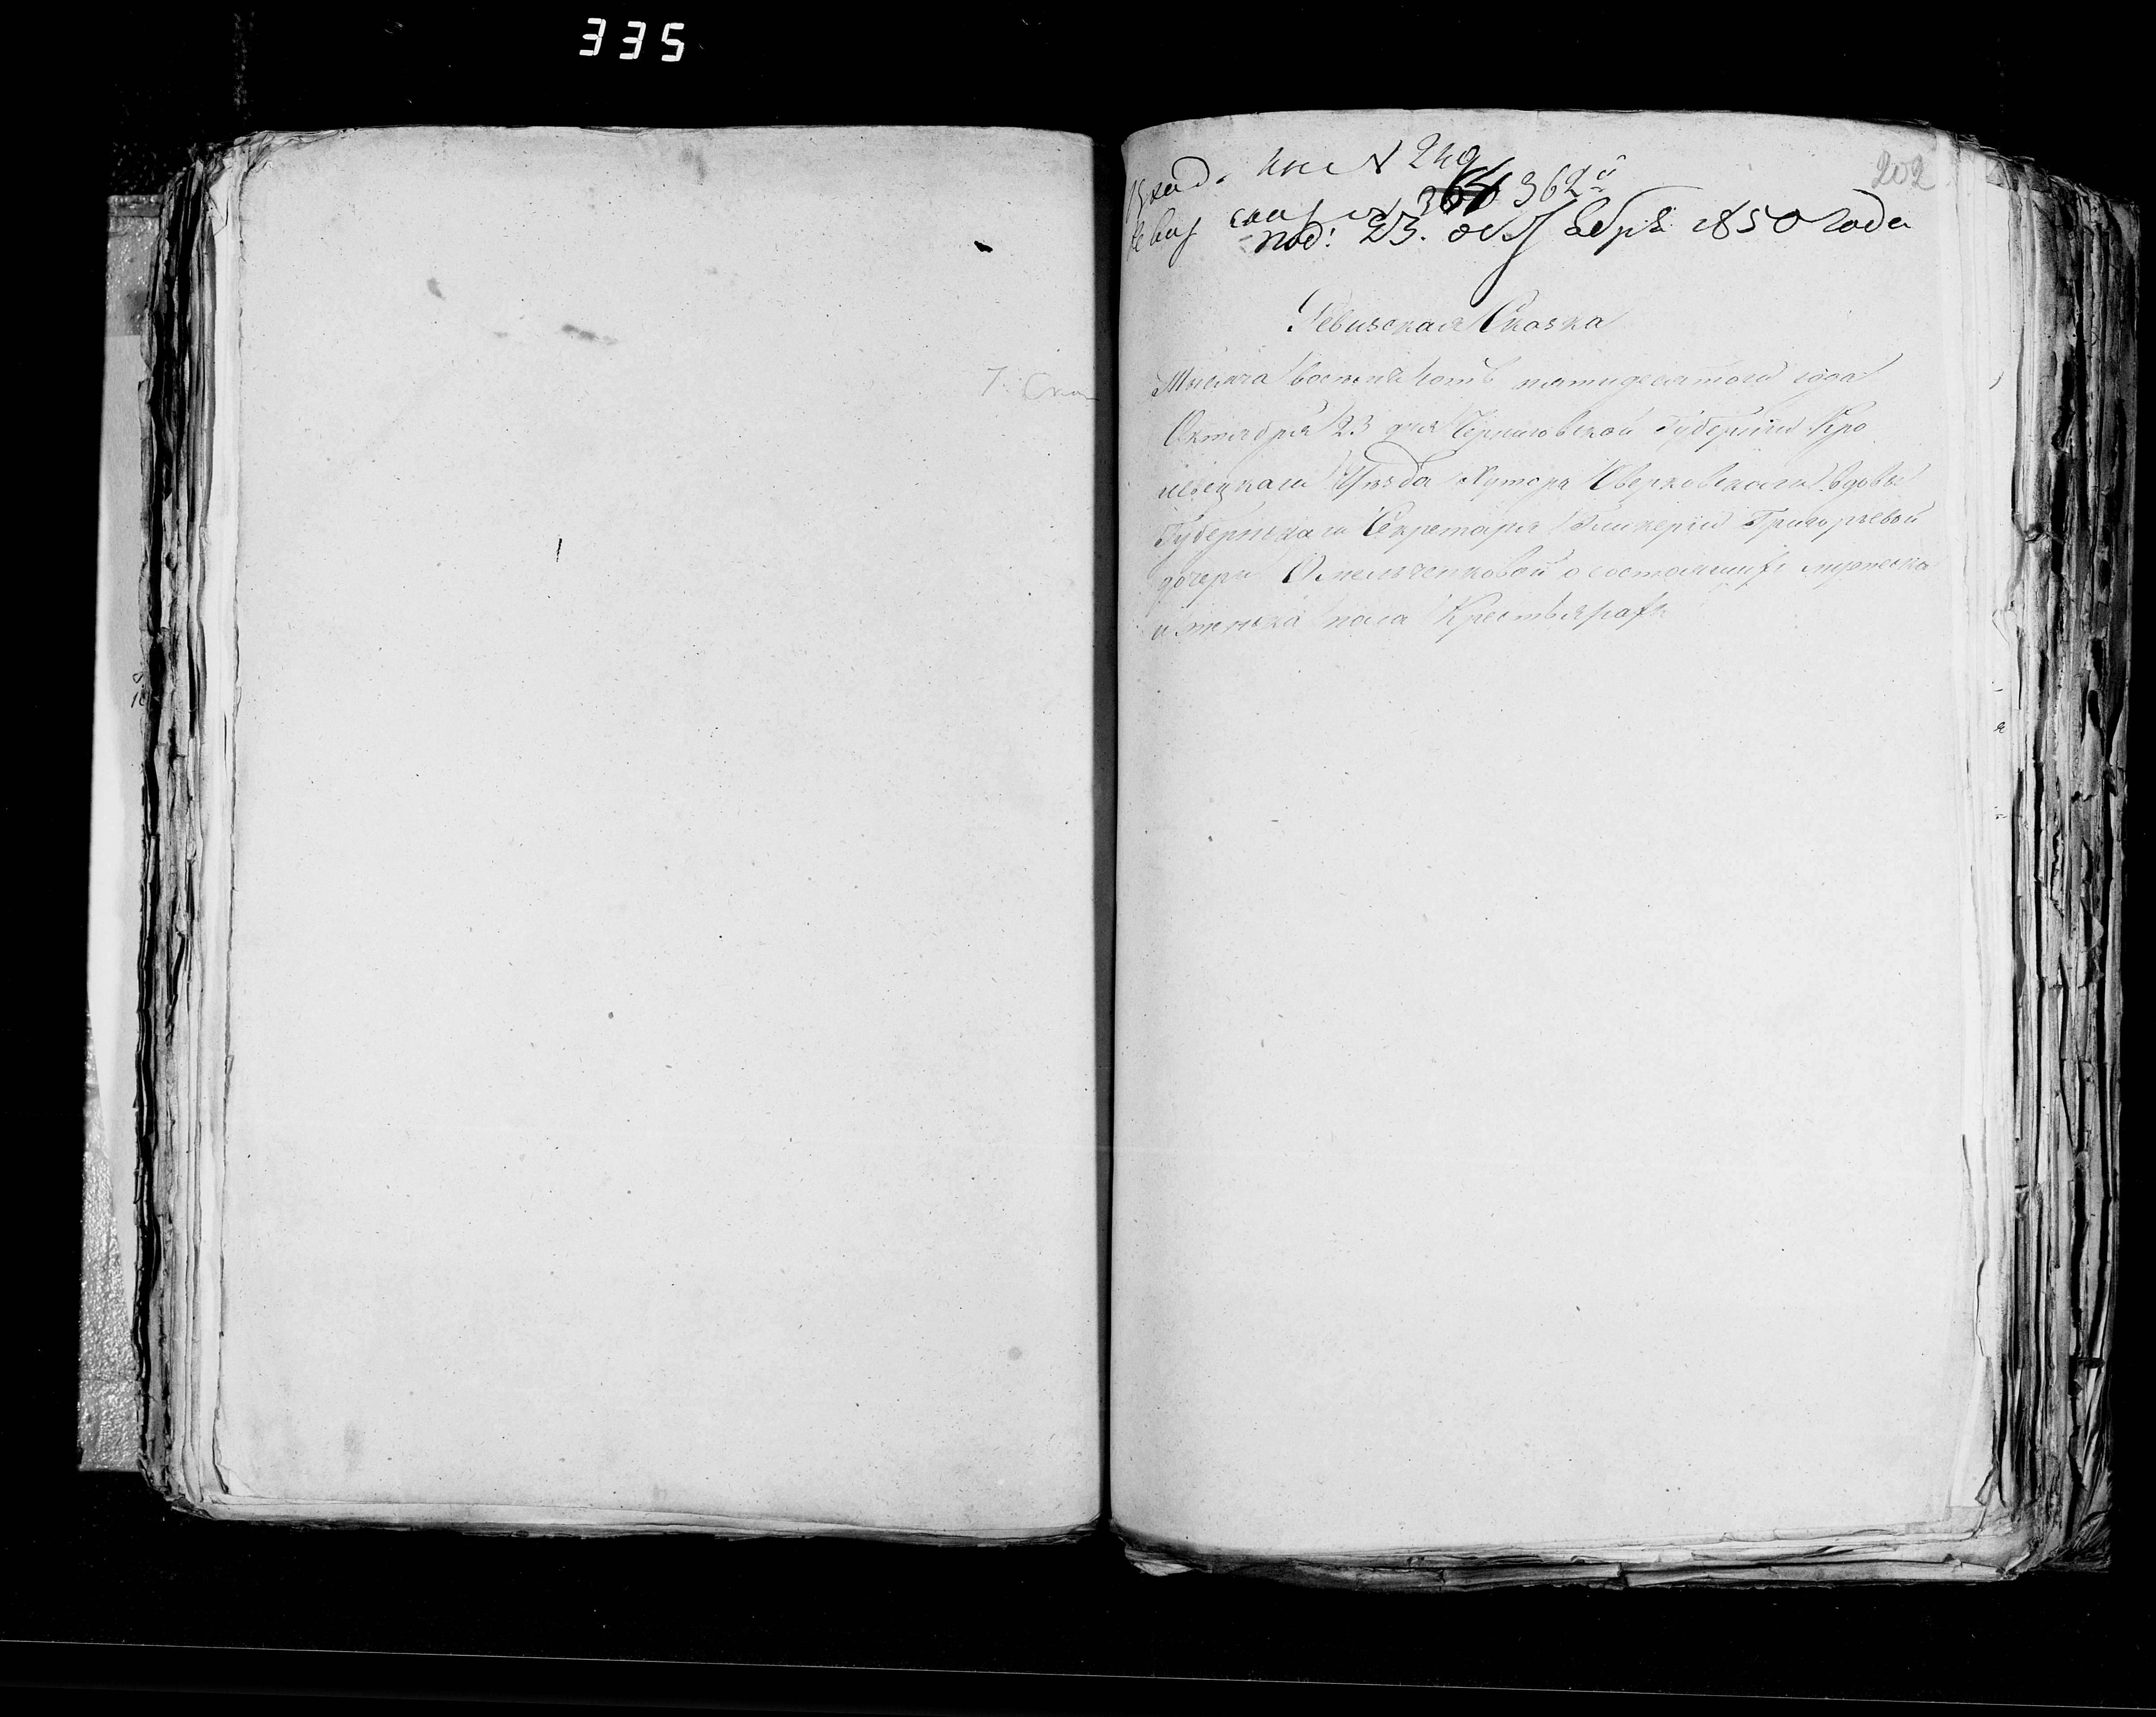 335
202
вход. кни N 249
реви сказ N 364 362й
под: 23. октября 1850 года
Ревизская Сказка
Тысяча восемь сотъ пятидесятого года
Октября 23 дня Черниговской Губернии Кро
левецкаго Уѣзда Хутора вдовы
Губернскаго Секретаря Гликеріи Григорьевой
дочери Омельченковой о состоящихъ мужеска
и женска пола Крестьянахъ